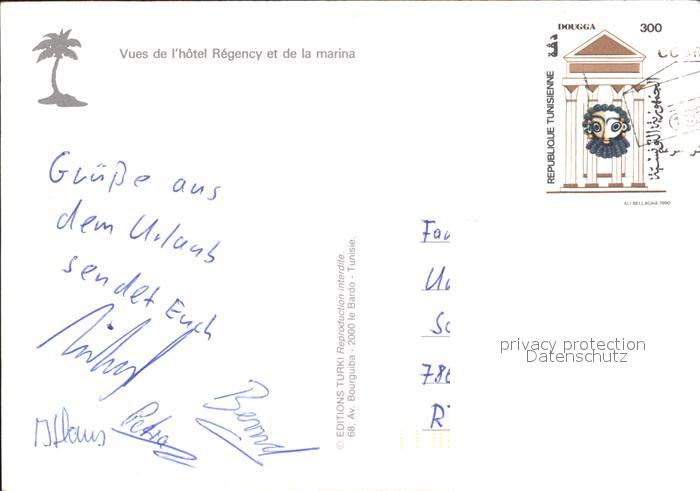 Vues de l'hôtel Régency et de la marina
DOUGGA 300
دقة
REPUBLIQUE TUNISIENNE
الجمهورية التونسية
ALI BELLAGHA 1990
Grüße aus
dem Urlaub
sendet Euch
Petra
Bernd
© EDITIONS TURKI Reproduction interdite.
68, Av. Bourguiba - 2000 le Bardo - Tunisie.
786
privacy protection
Datenschutz